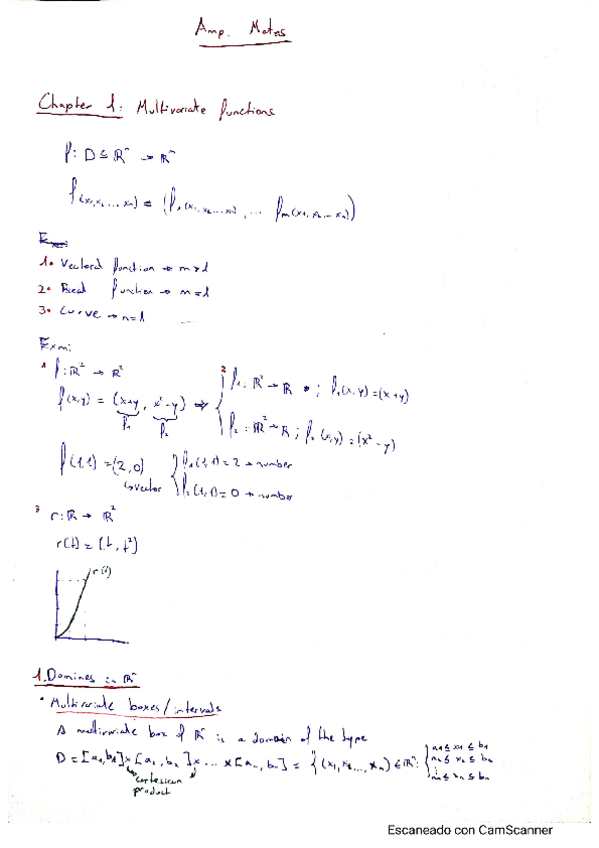 Amp. Mates
Chapter 1: Multivariate functions
f: D ⊆ ℝⁿ → ℝᵐ
f(x₁, x₂ ... xₙ) = (f₁(x₁, x₂ ... xₙ), ... fₘ(x₁, x₂ ... xₙ))
1• Vectorial function → m>1
2• Real function → m=1
3• Curve → n=1
Exm:
1 f: ℝ² → ℝ²
f(x,y) = (x+y, x²-y) ⇒ { f₁: ℝ² → ℝ ; f₁(x,y) = (x+y)
f₁ f₂
2
f₂: ℝ² → ℝ ; f₂(x,y) = (x²-y)
f(1,1) = (2,0) { f₁(1,1) = 2 → number
↳ vector f₂(1,1) = 0 → number
3 r: ℝ → ℝ²
r(t) = (t, t²)
r(t)
1. Domines in ℝⁿ
• Multivariate boxes/intervals
A multivariate box of ℝⁿ is a domain of the type
D = [a₁, b₁] × [a₂, b₂] × ... × [aₙ, bₙ] = { (x₁, x₂ ..., xₙ) ∈ ℝⁿ: { a₁ ≤ x₁ ≤ b₁
a₂ ≤ x₂ ≤ b₂
⋮
aₙ ≤ xₙ ≤ bₙ
cartesian
product
Escaneado con CamScanner